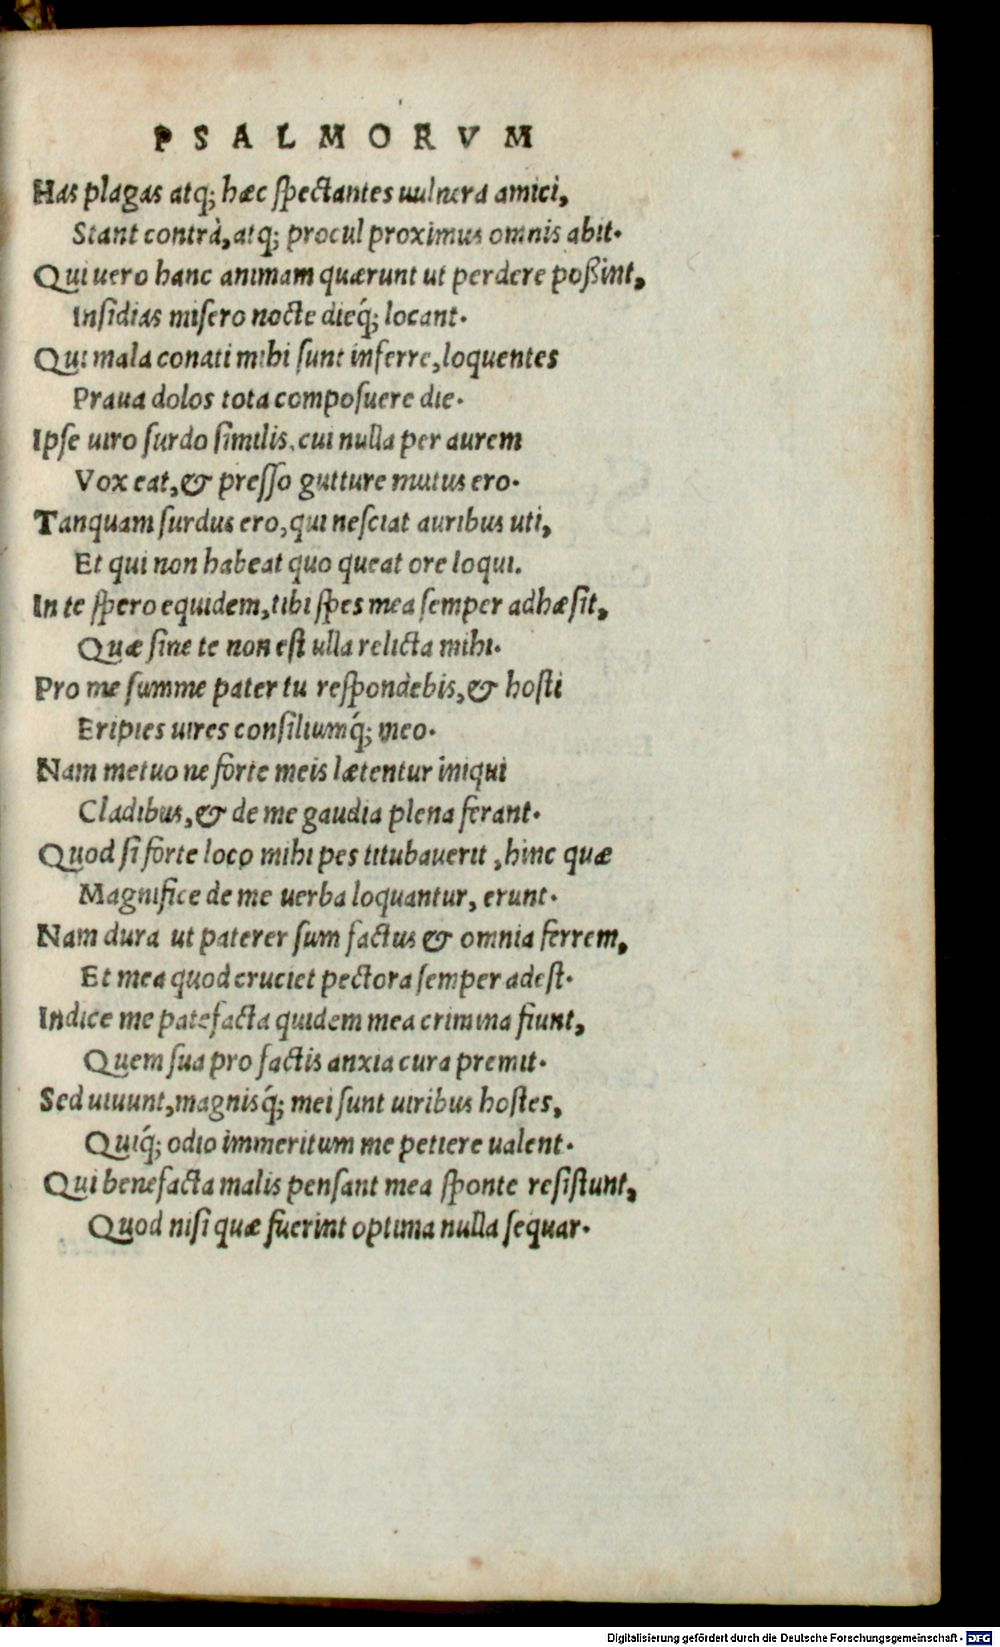 PSALMORVM
Has plagas atq; hæc spectantes uulnera amici,
Stant contrà, atq; procul proximus omnis abit.
Qui uero hanc animam quærunt ut perdere poßint,
Insidias misero nocte dieq́; locant.
Qui mala conati mihi sunt inferre, loquentes
Praua dolos tota composuere die.
Ipse uiro surdo similis, cui nulla per aurem
Vox eat, & presso gutture mutus ero.
Tanquam surdus ero, qui nesciat auribus uti,
Et qui non habeat quo queat ore loqui.
In te spero equidem, tibi spes mea semper adhæsit,
Quæ sine te non est ulla relicta mihi.
Pro me summe pater tu respondebis, & hosti
Eripies uires consiliumq́; meo.
Nam metuo ne forte meis lætentur iniqui
Cladibus, & de me gaudia plena ferant.
Quod si forte loco mihi pes titubaverit, hinc quæ
Magnifice de me uerba loquantur, erunt.
Nam dura ut paterer sum factus & omnia ferrem,
Et mea quod cruciet pectora semper adest.
Indice me patefacta quidem mea crimina fiunt,
Quem sua pro factis anxia cura premit.
Sed uiuunt, magnisq́; mei sunt uiribus hostes,
Quiq́; odio immeritum me petiere ualent.
Qui benefacta malis pensant mea sponte resistunt,
Quod nisi quæ fuerint optima nulla sequar.
Digitalisierung gefördert durch die Deutsche Forschungsgemeinschaft - DFG